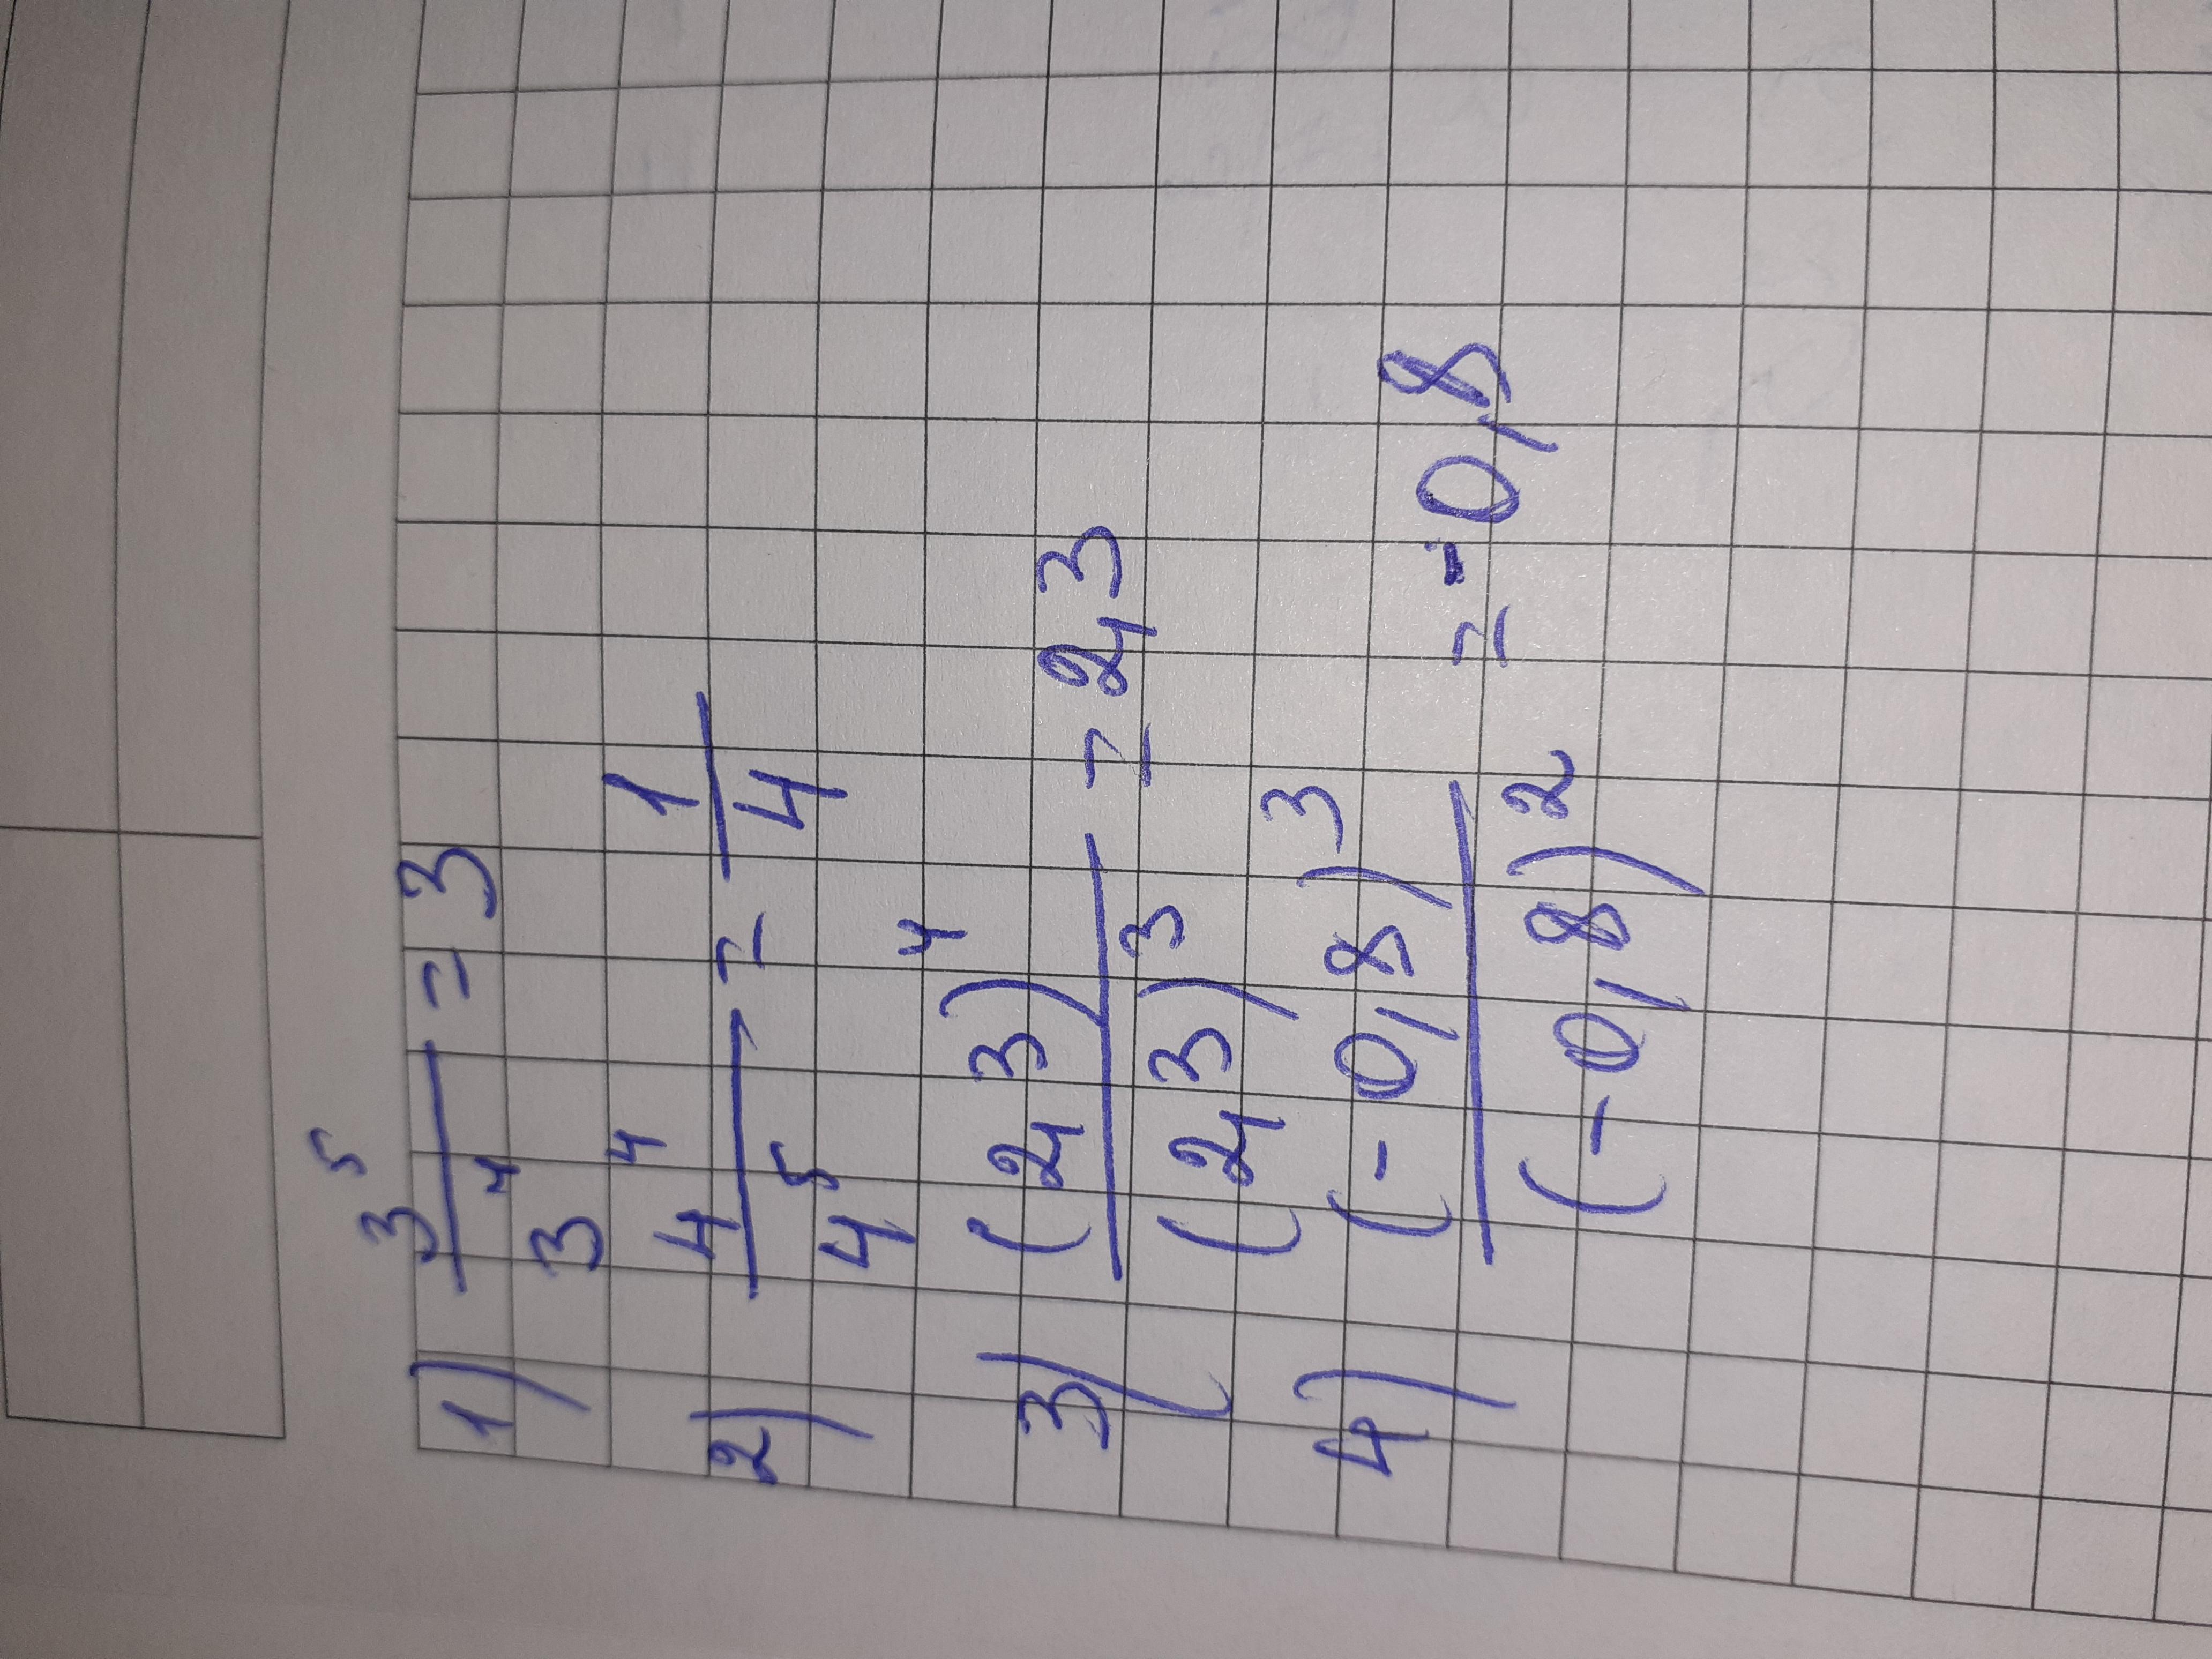 1) 3⁵/3⁴ = 3
2) 4⁴/4⁵ = 1/4
3) (2,3)⁴/(2,3)³ = 2,3
4) (-0,8)³/(-0,8)² = -0,8